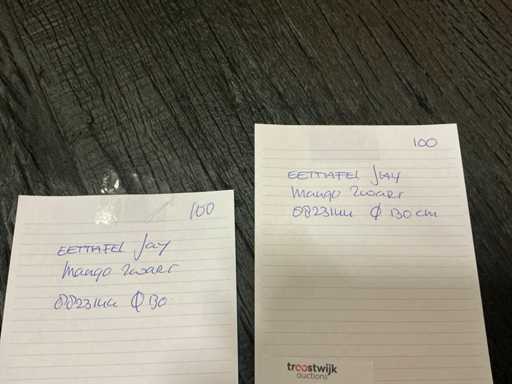 100
EETTAFEL Jay
Mango Zwart
Ø 130
100
EETTAFEL JAY
Mango Zwart
Ø 130 cm
troostwijk
auctions